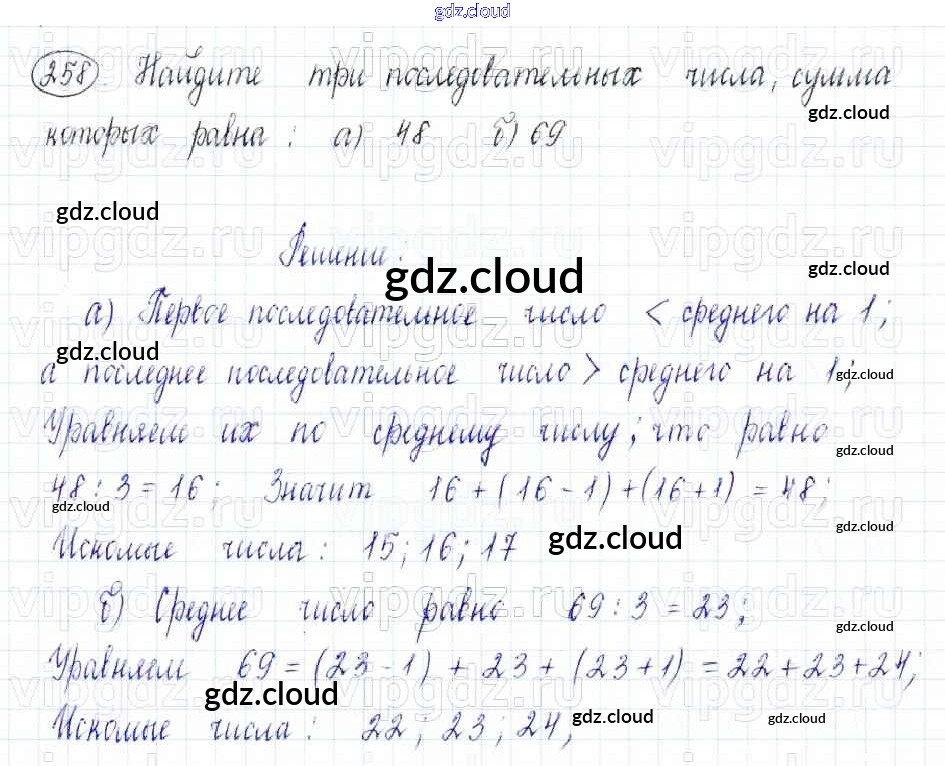 gdz.cloud
258. Найдите три последовательных числа, сумма
gdz.cloud
которых равна : а) 48 б) 69
gdz.cloud
Решение:
gdz.cloud
gdz.cloud
а) Первое последовательное число < среднего на 1;
gdz.cloud
а последнее последовательное число > среднего на 1;
gdz.cloud
Уравняем их по среднему числу; что равно
gdz.cloud
48 : 3 = 16; Значит 16 + (16 - 1) + (16 + 1) = 48;
gdz.cloud
gdz.cloud
Искомые числа: 15; 16; 17
gdz.cloud
б) Среднее число равно 69 : 3 = 23;
gdz.cloud
Уравняем 69 = (23 - 1) + 23 + (23 + 1) = 22 + 23 + 24;
gdz.cloud
Искомые числа : 22 ; 23 ; 24;
gdz.cloud
gdz.cloud
vipgdz.ru